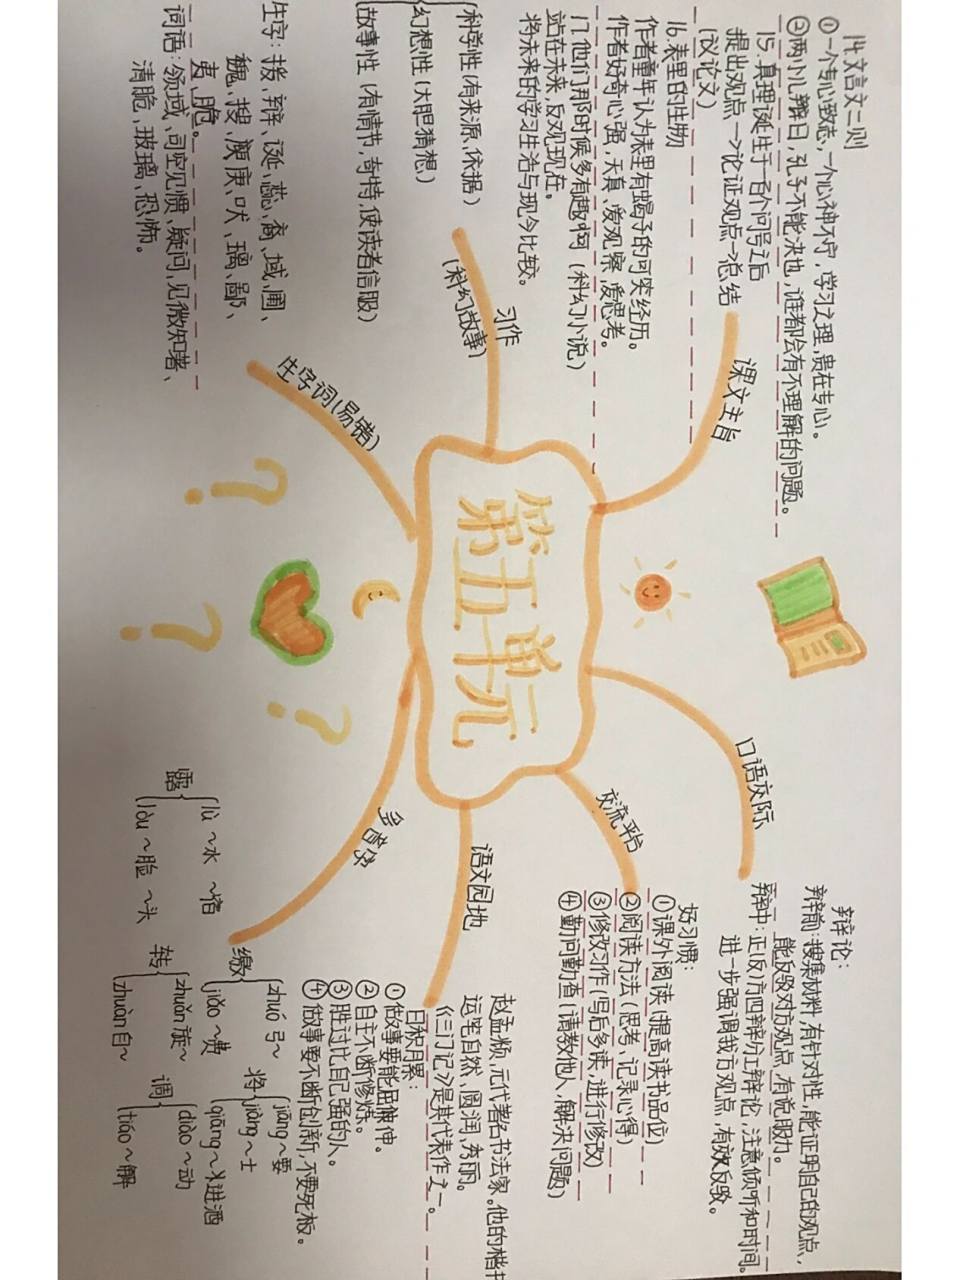 第五单元
课文主旨
14.文言文二则
①一个专心致志,一个心神不宁,学习之理,贵在专心。
②两小儿辩日,孔子不能决也,谁都会有不理解的问题。
15.真理诞生于一百个问号之后
提出观点→论证观点→总结
(议论文)
16.表里的生物
作者童年认为表里有蝎子的可笑经历。
作者好奇心强,天真、爱观察,爱思考。
17.他们那时候多有趣啊(科幻小说)
站在未来,反观现在。
将未来的学习生活与现今比较。
习作
(科幻故事)
科学性(有来源,依据)
幻想性(大胆猜想)
故事性(有情节,奇特,使读者信服)
生字词(易错)
生字:拨、辩、诞、蕊、裔、域、圃、
魏、搜、颜、庚、吠、璃、鄙、
夷、脆。
词语:领域、司空见惯、疑问、见微知著、
清脆、玻璃、恐怖。
口语交际
辩论:
辩前:搜集材料,有针对性,能证明自己的观点,
能反驳对方观点,有说服力。
辩中:正(反)方四辩分工辩论,注意倾听和时间。
进一步强调我方观点,有效反驳。
交流平台
好习惯:
①课外阅读(提高读书品位)
②阅读方法(思考、记录心得)
③修改习作(写后多读,进行修改)
④勤问勤查(请教他人,解决问题)
语文园地
赵孟頫,元代著名书法家。他的楷书
运笔自然、圆润,秀丽。
《三门记》是其代表作之一。
日积月累:
①做事要能屈能伸。
②自主不断修炼。
③胜过比自己强的人。
④做事要不断创新,不要死板。
多音字
缴 zhuó 弓~
jiǎo ~费
将 jiāng ~要
jiàng ~士
qiāng ~进酒
露 lù ~水 ~宿
lòu ~脸 ~头
转 zhuǎn 旋~
zhuàn 自~
调 diào ~动
tiáo ~解